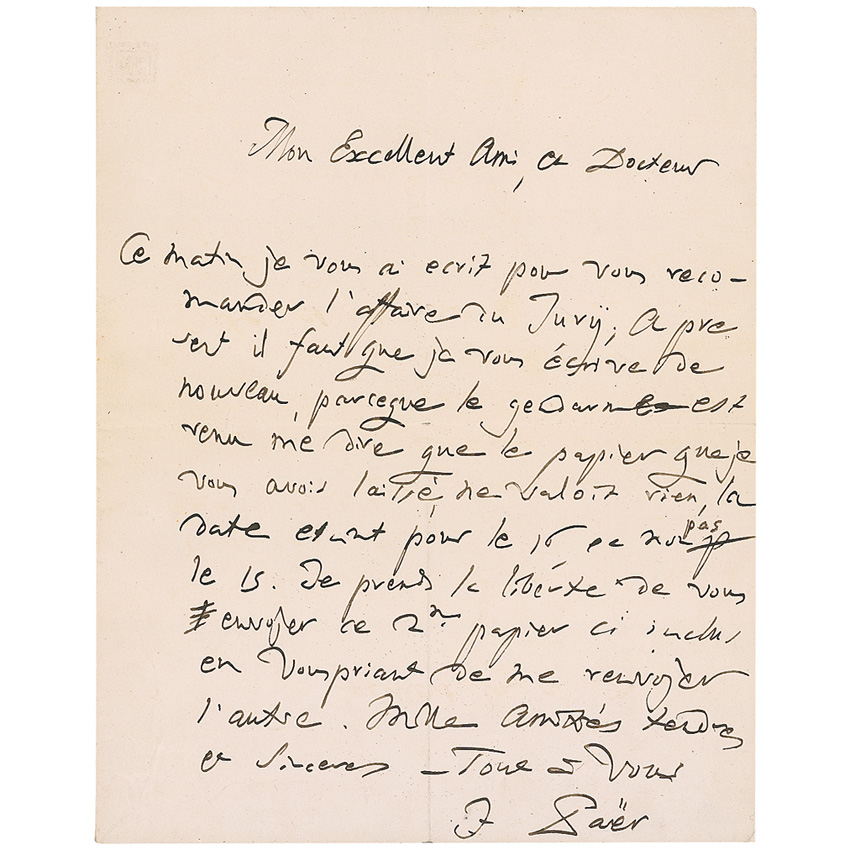 Mon Excellent Ami, et Docteur
Ce matin je vous ai ecrit pour vous reco-
mander l'affaire du Jurÿ, A pre
sent il faut que je vous écrive de
nouveau, parceque le gedarme est
venu me dire que le papier que je
vous avois laissé, ne valoit rien, la
date etant pour le 16 et non pas
le 15. Je prends la libérte de vous
envoyer ce 2me papier ci inclus
en vous priant de me renvoyer
l'autre. Mille Amitiés tendres
et sinceres - Tout à Vous
F Paër